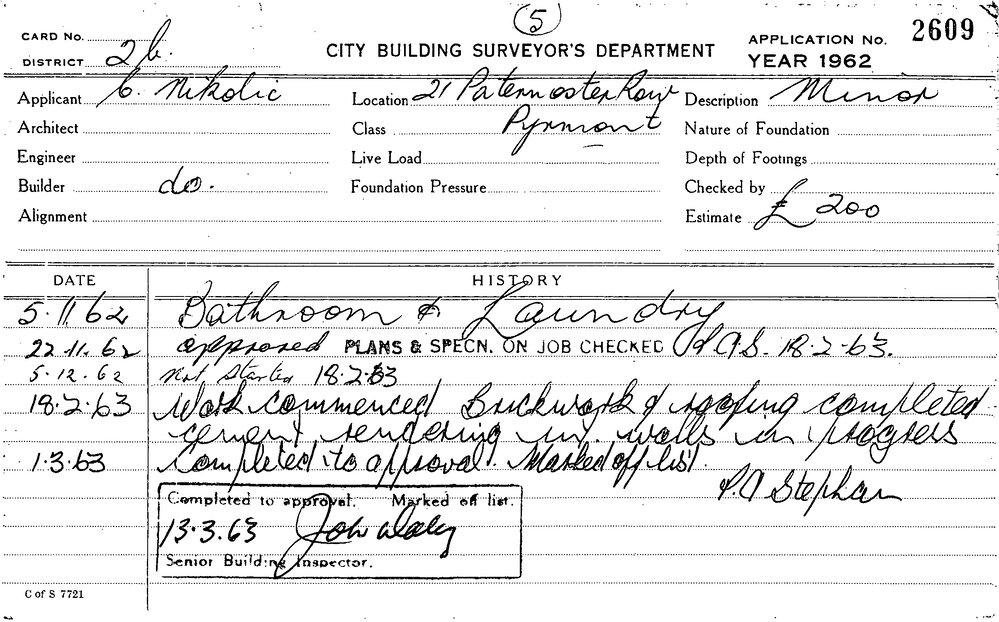 (5)
CARD No.
DISTRICT 2b.
CITY BUILDING SURVEYOR'S DEPARTMENT
APPLICATION No. 2609
YEAR 1962
Applicant C. Nikolic
Location 21 Paternoster Row
Description Minor
Architect
Class Pyrmont
Nature of Foundation
Engineer
Live Load
Depth of Footings
Builder do.
Foundation Pressure
Checked by
Alignment
Estimate £ 200
DATE HISTORY
5.11.62 Bathroom & Laundry
22.11.62 approved PLANS & SPECN. ON JOB CHECKED P.A.S. 18-2-63.
5.12.62 Not Started 18.2.63
18.2.63 Work commenced Brickwork & roofing completed
cement rendering int. walls in progress
1.3.63 Completed to approval. Marked off list.
P.A Stephan
Completed to approval. Marked off list.
13.3.63
Senior Building Inspector.
C of S 7721